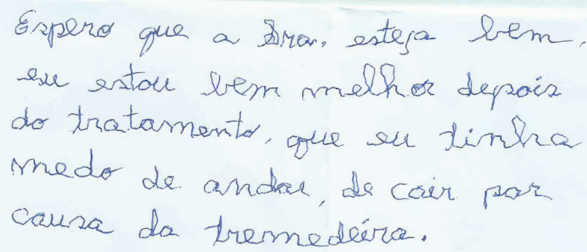 Espero que a Dra. esteja bem,
eu estou bem melhor depois
do tratamento, que eu tinha
medo de andar, de cair por
causa da tremedeira.